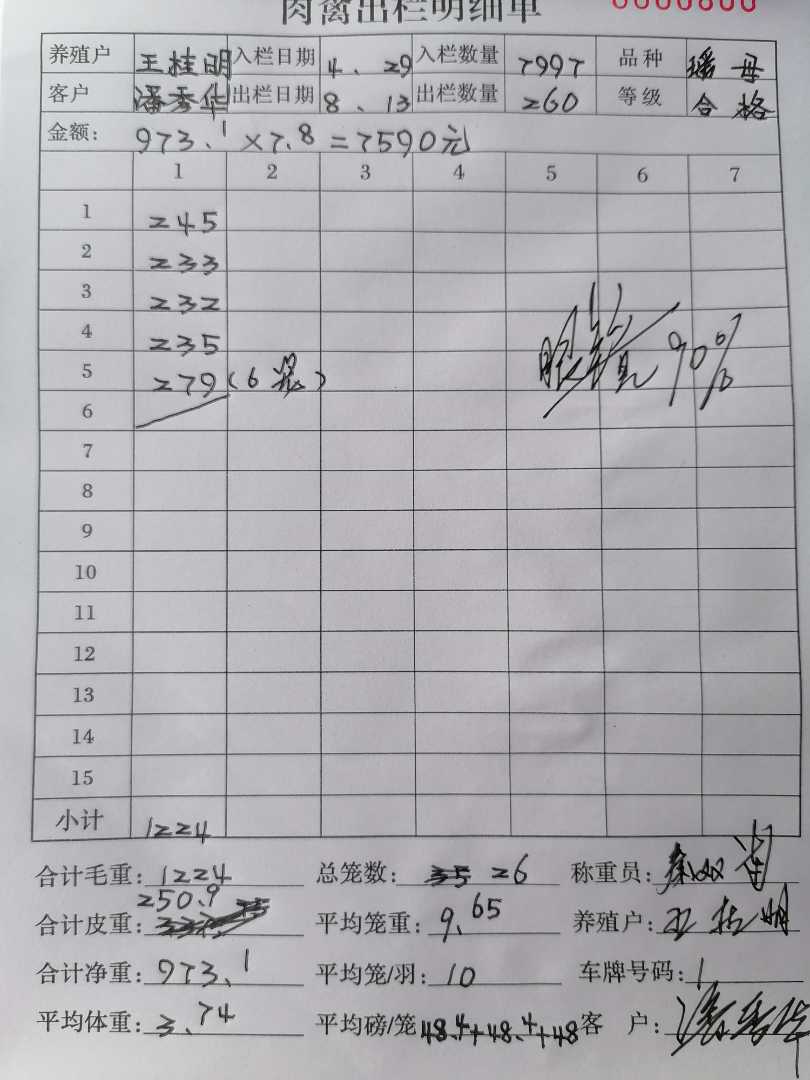 肉禽出栏明细单 0000800
养殖户 王桂明 入栏日期 4.29 入栏数量 7997 品种 瑶母
客户 潘秀华 出栏日期 8.13 出栏数量 260 等级 合格
金额: 973.1×7.8=7590元
1 2 3 4 5 6 7
1 245
2 233
3 232
4 235
5 279(6笼)
6
7
8
9
10
11
12
13
14
15
小计 1224
90%
合计毛重: 1224 总笼数: 35 26 称重员:
合计皮重: 250.9 平均笼重: 9.65 养殖户: 王桂明
合计净重: 973.1 平均笼/羽: 10 车牌号码: 1
平均体重: 3.74 平均磅/笼 48.4+48.4+48 客户: 潘秀华